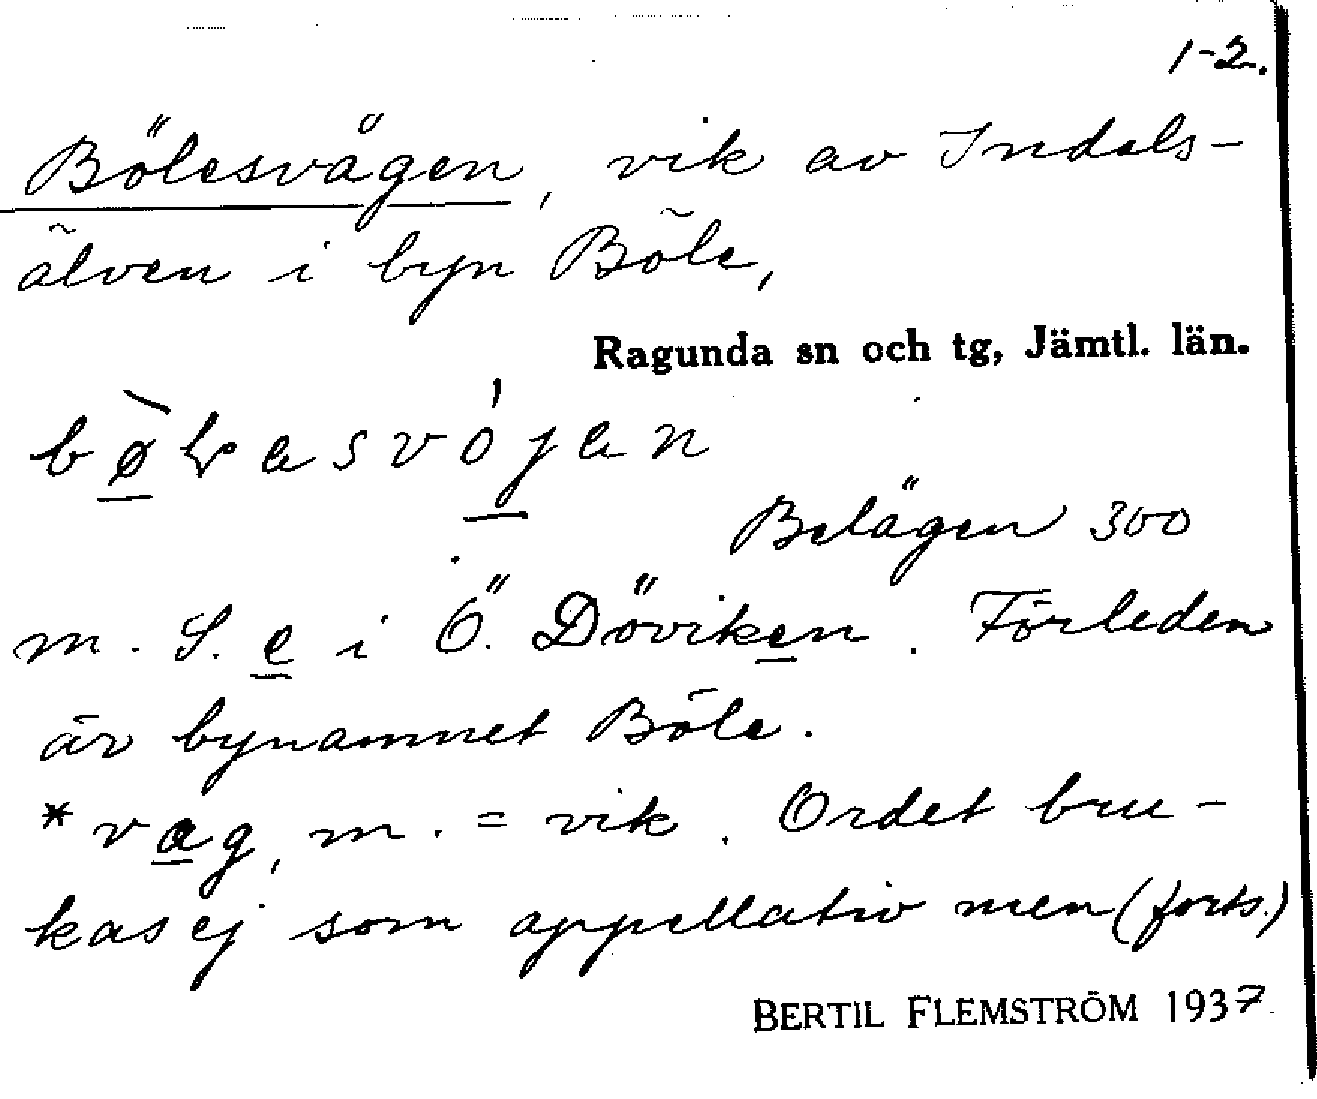 1-2.
Bölesvågen, vik av Indals-
älven i byn Böle,
Ragunda sn och tg, Jämtl. län.
Belägen 300
m. S. e i Ö. Döviken. Förleden
är bynamnet Böle.
*vag, m. = vik. Ordet bru-
kas ej som appellativ men (forts.)
BERTIL FLEMSTRÖM 1937